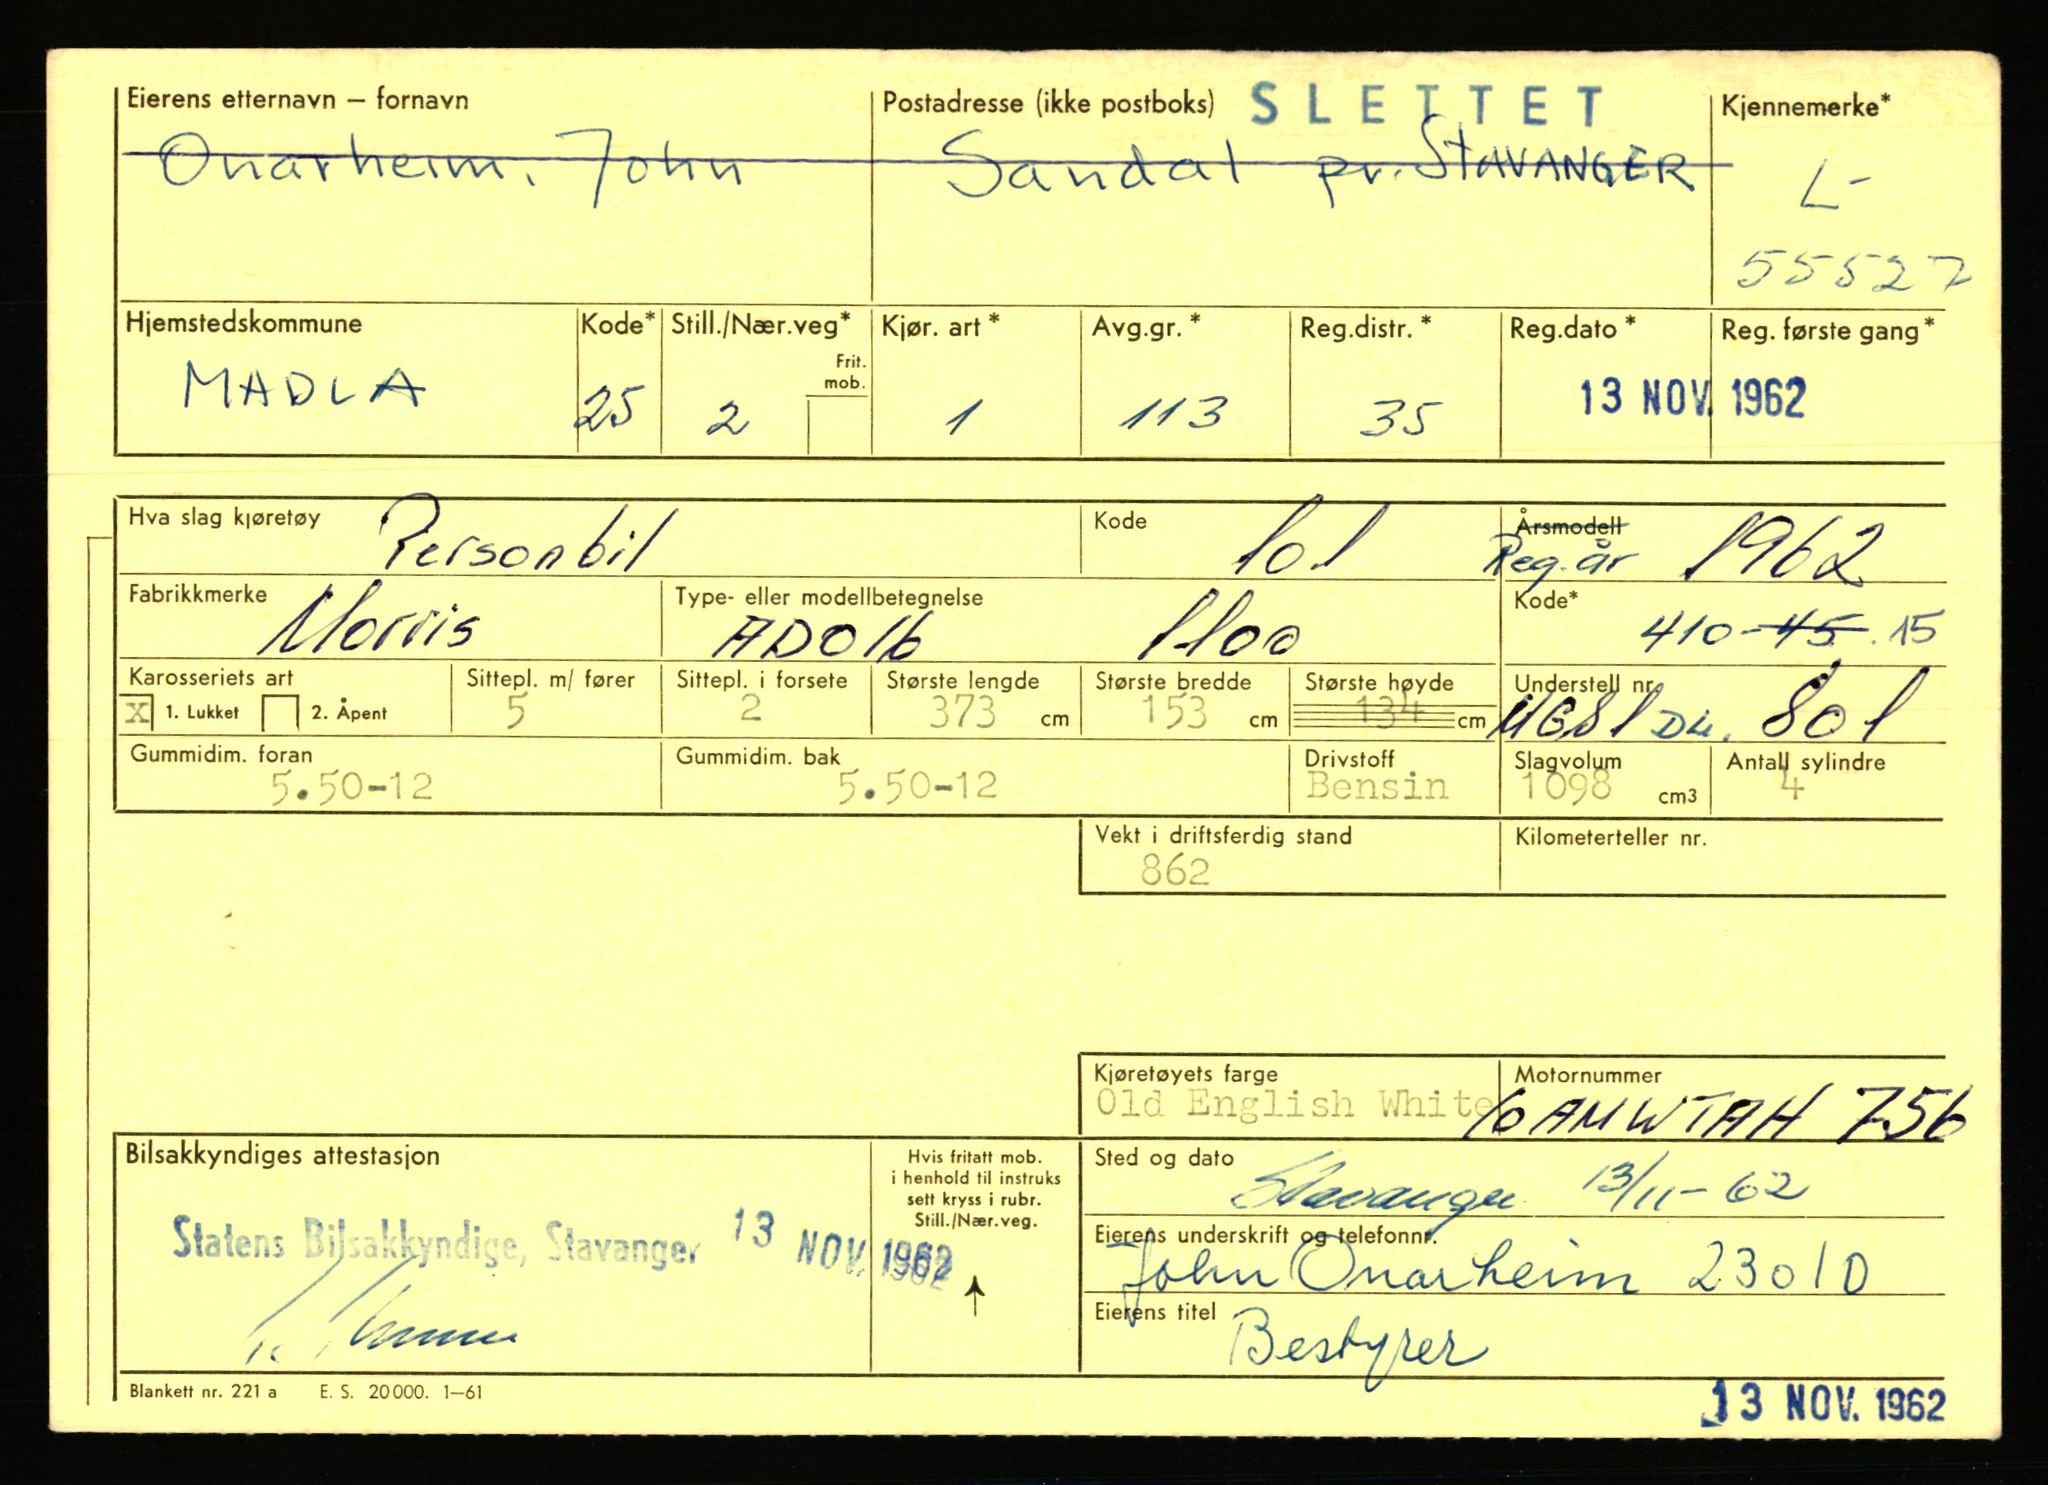 Eierens etternavn – fornavn Postadresse (ikke postboks) SLETTET Kjennemerke*
Onarheim, John Sandal pr. STAVANGER L-
55527
Hjemstedskommune Kode* Still./Nær.veg* Kjør. art* Avg.gr.* Reg.distr.* Reg.dato* Reg. første gang*
Frit. mob.
MADLA 25 2 1 113 35 13 NOV. 1962
Hva slag kjøretøy Personbil Kode 101 Årsmodell Reg.år 1962
Fabrikkmerke Morris Type- eller modellbetegnelse ADO16 1100 Kode* 410-45.15
Karosseriets art Sittepl. m/ fører Sittepl. i forsete Største lengde Største bredde Største høyde Understell nr.
X 1. Lukket 2. Åpent 5 2 373 cm 153 cm 134 cm MGS1 DM. 801
Gummidim. foran Gummidim. bak Drivstoff Slagvolum Antall sylindre
5.50-12 5.50-12 Bensin 1098 cm3 4
Vekt i driftsferdig stand Kilometerteller nr.
862
Kjøretøyets farge Motornummer
Old English White 10AMWTAH 756
Bilsakkyndiges attestasjon
Hvis fritatt mob.
i henhold til instruks
sett kryss i rubr.
Still./Nær.veg.
Sted og dato
Stavanger 13/11-62
Statens Bilsakkyndige, Stavanger 13 NOV. 1962
Eierens underskrift og telefonnr.
John Onarheim 23010
Eierens titel
Bestyrer
Blankett nr. 221 a E. S. 20000. 1–61
13 NOV. 1962